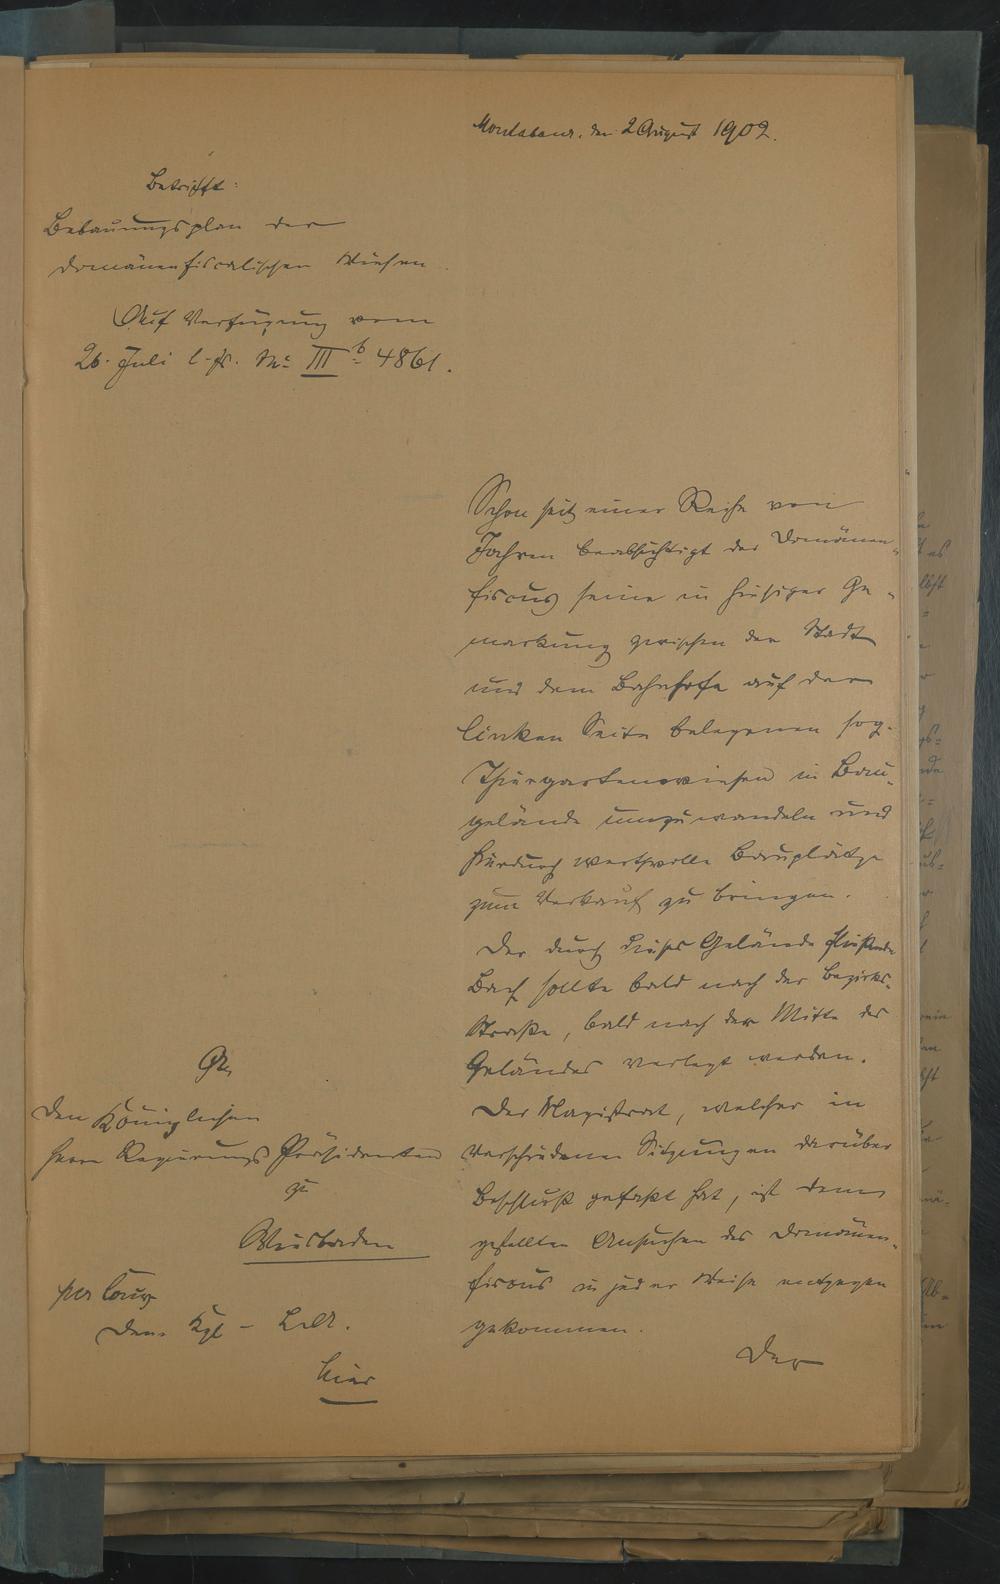 Montabaur, den 2 August 1902.
Betrifft:
Bebauungsplan der
domänenfiscalischen Wiesen
Auf Verfügung vom
26. Juli l. Js. No III b 4861.
Schon seit einer Reihe von
Jahren beabsichtigt der Domänen-
fiscus seine in hiesiger Ge-
markung zwischen der Stadt
und dem Bahnhofe auf der
linken Seite belegenen sog.
Thiergartenwiesen in Bau-
gelände umzuwandeln und
hierdurch werthvolle Bauplätze
zum Verkauf zu bringen.
Der durch dieses Gelände fließende
Bach sollte bald nach der Bezirks-
straße, bald nach der Mitte des
Geländes verlegt werden.
Der Magistrat, welcher in
verschiedenen Sitzungen darüber
Beschluß gefaßt hat, ist dem
gestellten Ansuchen des Domänen-
fiscus in jeder Weise entgegen
gekommen.
Der
An
den Königlichen
Herrn Regierungs Präsidenten
zu
Wiesbaden
per Couv
dem Kgl. L.R.
hier